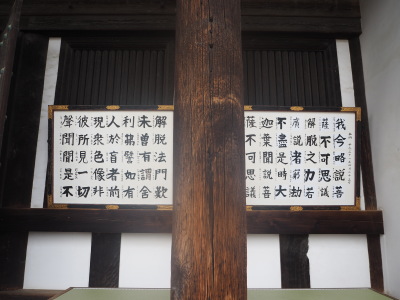 我今略説菩
薩不可思議
解脱之力若
廣説者窮劫
不盡是時大
迦葉聞説菩
薩不可思議
解脱法門歎
未曾有謂舍
利弗譬如有
人於盲者前
現衆色像非
彼所見一切
聲聞聞是不